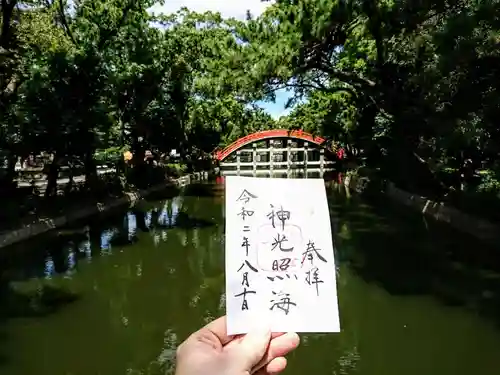 奉拝
神光照海
令和二年八月十日